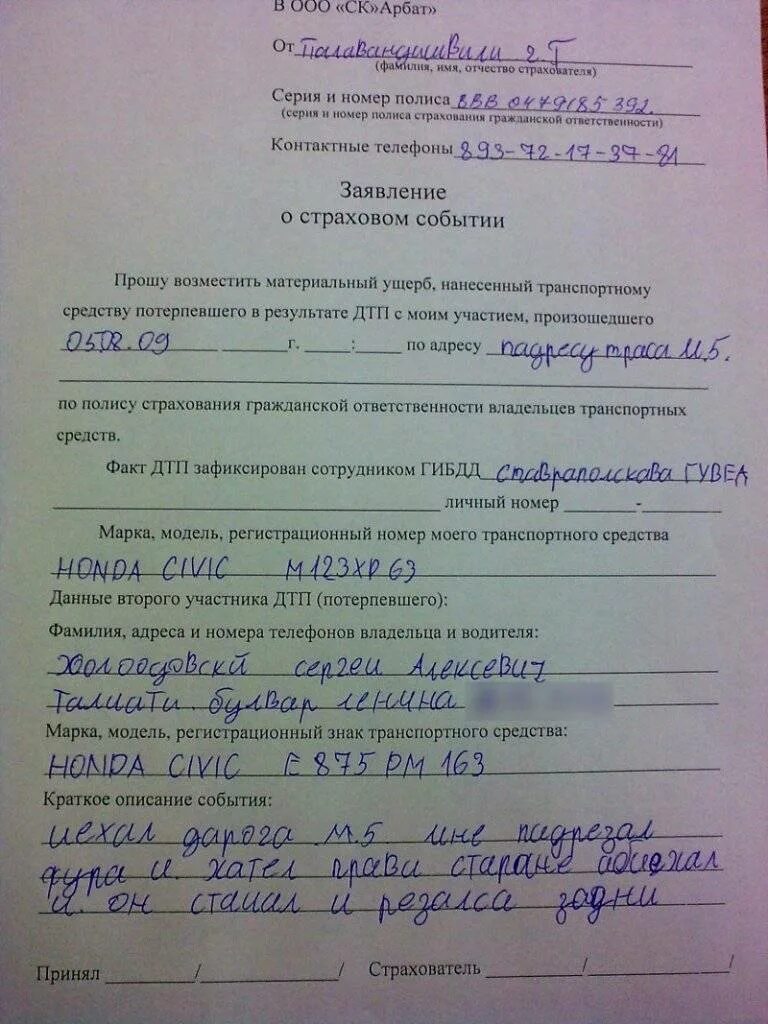 В ООО «СК»Арбат»
От Палавандишвили г. Т
(фамилия, имя, отчество страхователя)
Серия и номер полиса ВВВ 0479185392.
(серия и номер полиса страхования гражданской ответственности)
Контактные телефоны 893-72-17-37-81
Заявление
о страховом событии
Прошу возместить материальный ущерб, нанесенный транспортному
средству потерпевшего в результате ДТП с моим участием, произошедшего
05.08.09 ______ г. ____:____ по адресу падресу траса М.5.
по полису страхования гражданской ответственности владельцев транспортных
средств.
Факт ДТП зафиксирован сотрудником ГИБДД ставраполскава ГУВЕД
личный номер ______-______
Марка, модель, регистрационный номер моего транспортного средства
HONDA CIVIC М123ХР63
Данные второго участника ДТП (потерпевшего):
Фамилия, адреса и номера телефонов владельца и водителя:
сергеи Алексевич
Талиати булвар ленина
Марка, модель, регистрационный знак транспортного средства:
HONDA CIVIC Е 875 РМ 163
Краткое описание события:
иехал дарога М.5 мне падрезал
фура и. хател прави старане абиехал
и. он стаиал и резалса задни
Принял ________/____________/ Страхователь ________/____________/